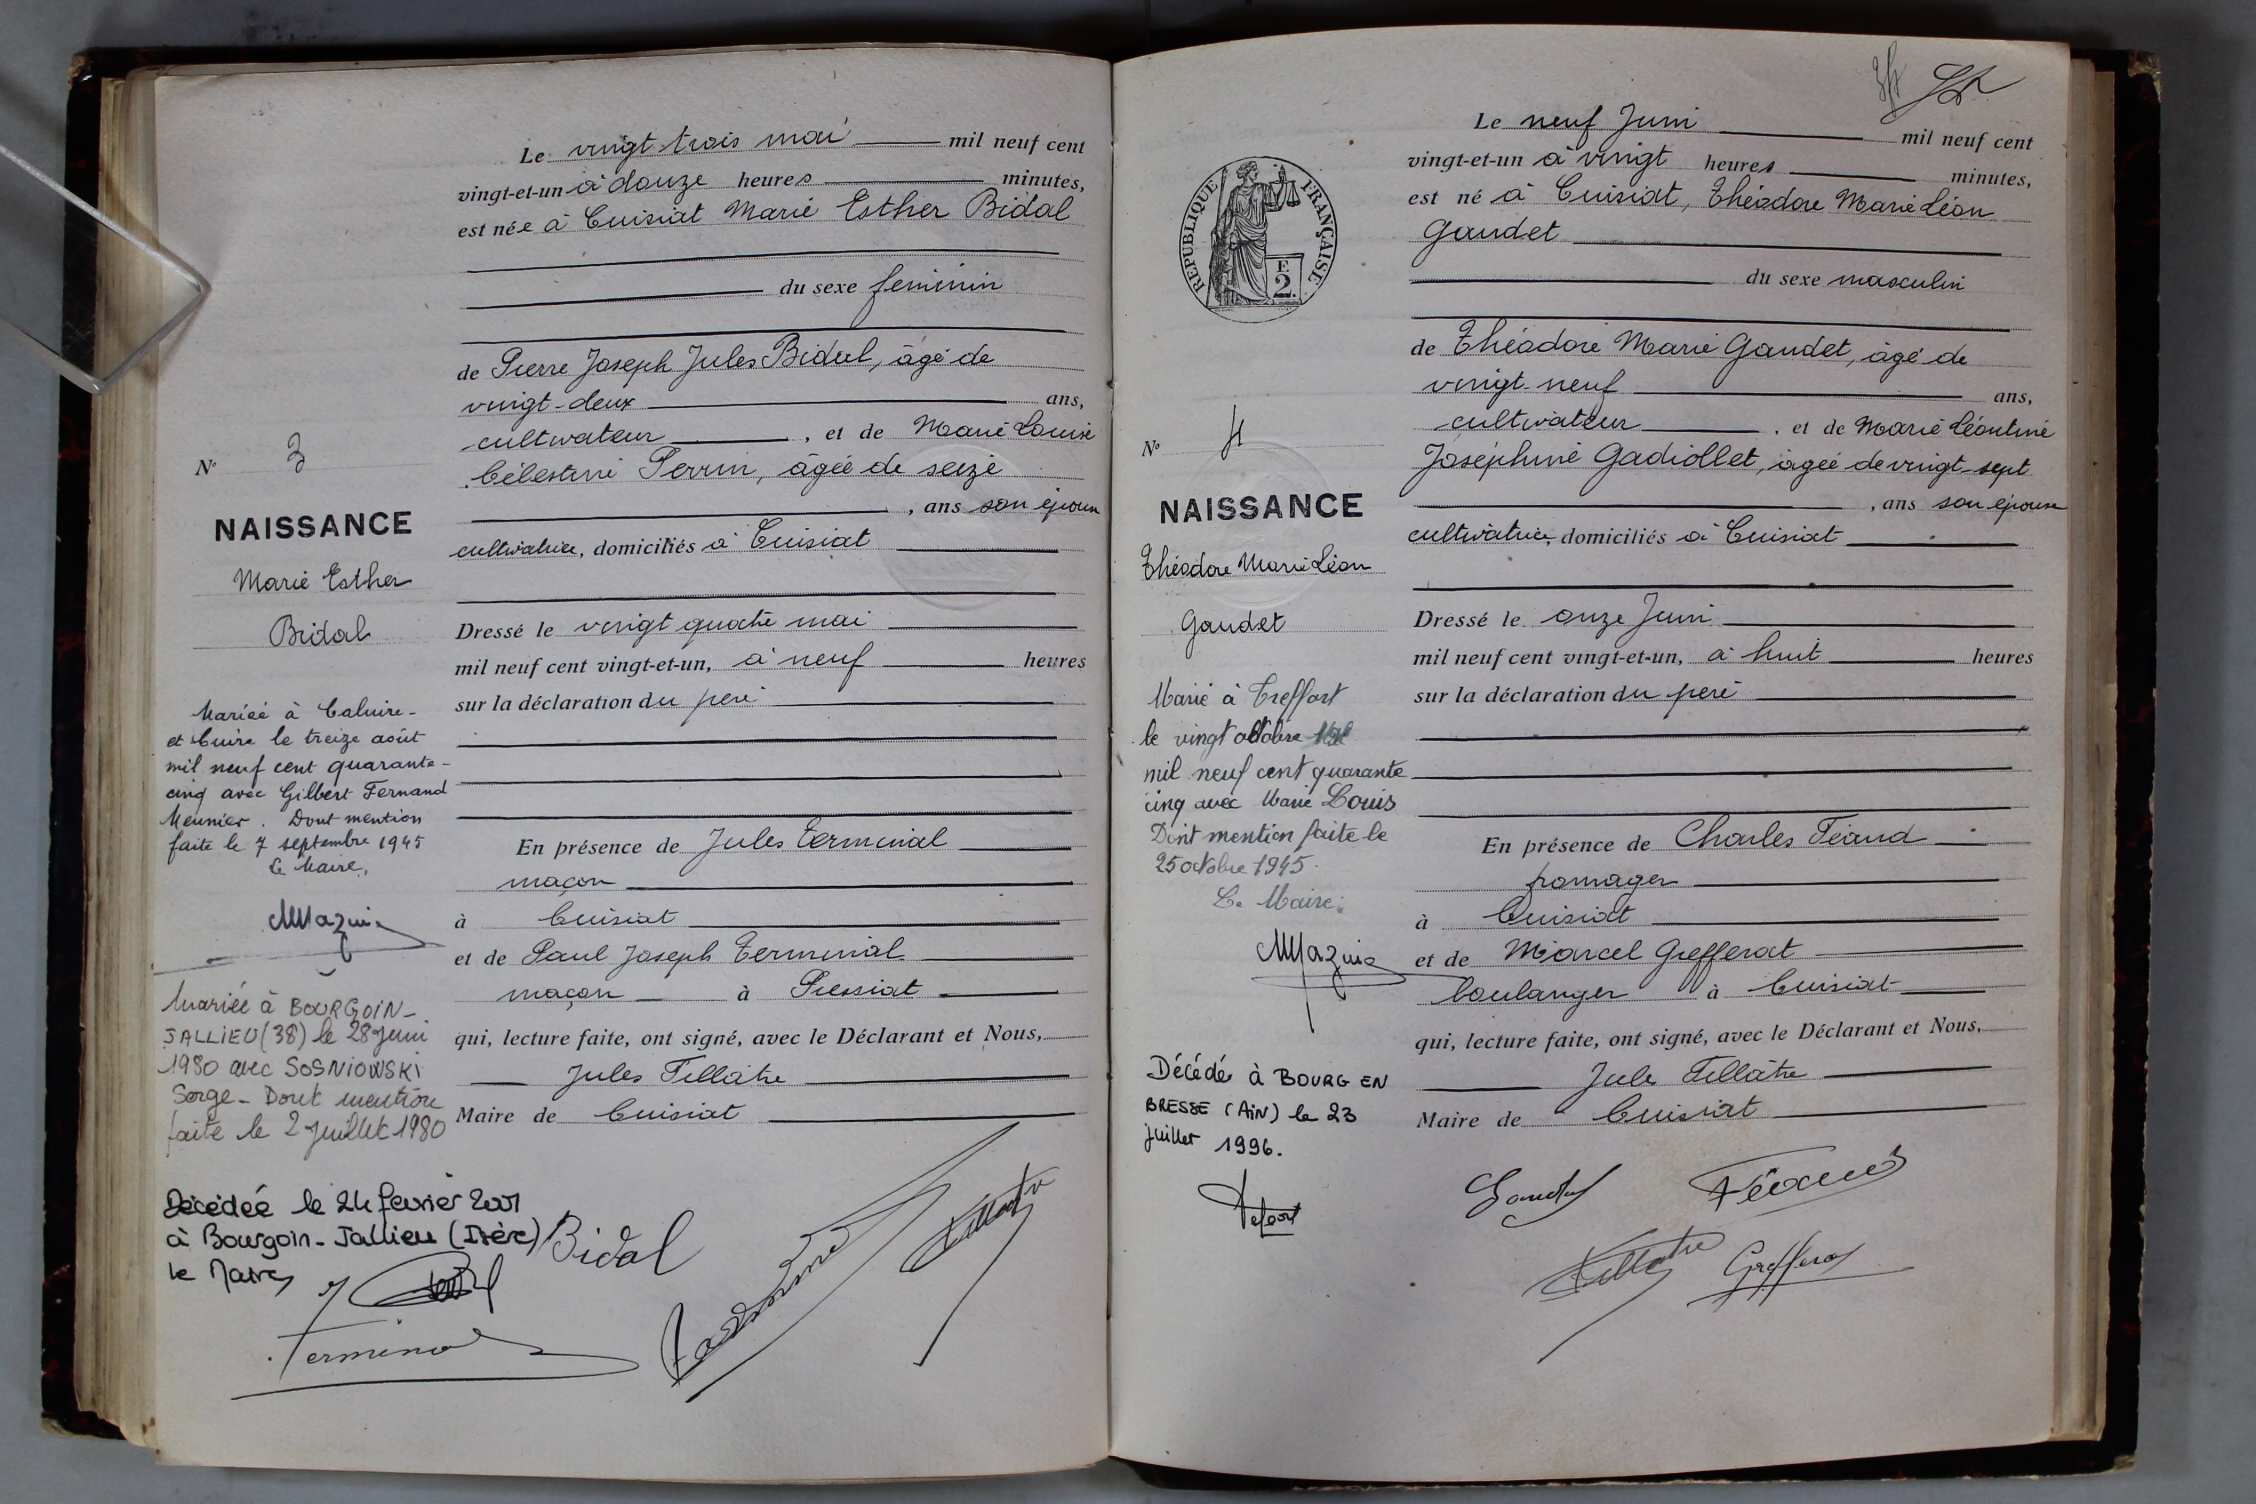 Le vingt trois mai mil neuf cent
vingt-et-un à douze heures minutes,
est née à Cuisiat Marie Esther Bidal
du sexe feminin
de Pierre Joseph Jules Bidal, âgé de
vingt-deux ans,
cultivateur, et de Marie Louise
Célestine Perrin, âgée de seize
, ans son épouse
cultivatrice, domiciliés à Cuisiat
Dressé le vingt quatre mai
mil neuf cent vingt-et-un, à neuf heures
sur la déclaration du père
En présence de Jules Terminal
maçon
à Cuisiat
et de Paul Joseph Terminal
maçon à Pressiat
qui, lecture faite, ont signé, avec le Déclarant et Nous,
Jules Tillâtre
Maire de Cuisiat
N° 3
NAISSANCE
Marie Esther
Bidal
Mariée à Caluire-
et Cuire le treize août
mil neuf cent quarante-
cinq avec Gilbert Fernand
Meunier. Dont mention
faite le 7 septembre 1945
Le Maire,
Mariée à BOURGOIN-
JALLIEU (38) le 28 juin
1980 avec SOSNIOWSKI
Serge - Dont mention
faite le 2 juillet 1980
Décédée le 24 février 2001
à Bourgoin-Jallieu (Isère)
le Maire
Bidal
Terminal
Tillatre
Le neuf Juin mil neuf cent
vingt-et-un à vingt heures minutes,
est né à Cuisiat, Théodore Marie Léon
Gaudet
du sexe masculin
de Théodore Marie Gaudet, âgé de
vingt-neuf ans,
cultivateur, et de Marie Léontine
Joséphine Gadiollet, âgée de vingt-sept
, ans son épouse
cultivatrice, domiciliés à Cuisiat
Dressé le onze Juin
mil neuf cent vingt-et-un, à huit heures
sur la déclaration du père
En présence de Charles Féaud
fromager
à Cuisiat
et de Marcel Grefferat
boulanger à Cuisiat
qui, lecture faite, ont signé, avec le Déclarant et Nous,
Jules Tillâtre
Maire de Cuisiat
REPUBLIQUE FRANÇAISE
E
2.
N° 4
NAISSANCE
Théodore Marie Léon
Gaudet
Marié à Treffort
le vingt octobre
mil neuf cent quarante
cinq avec Marie Louis
Dont mention faite le
25 octobre 1945.
Le Maire:
Décédé à BOURG EN
BRESSE (AIN) le 23
juillet 1996.
Gaudet
Tillatre
Grefferat